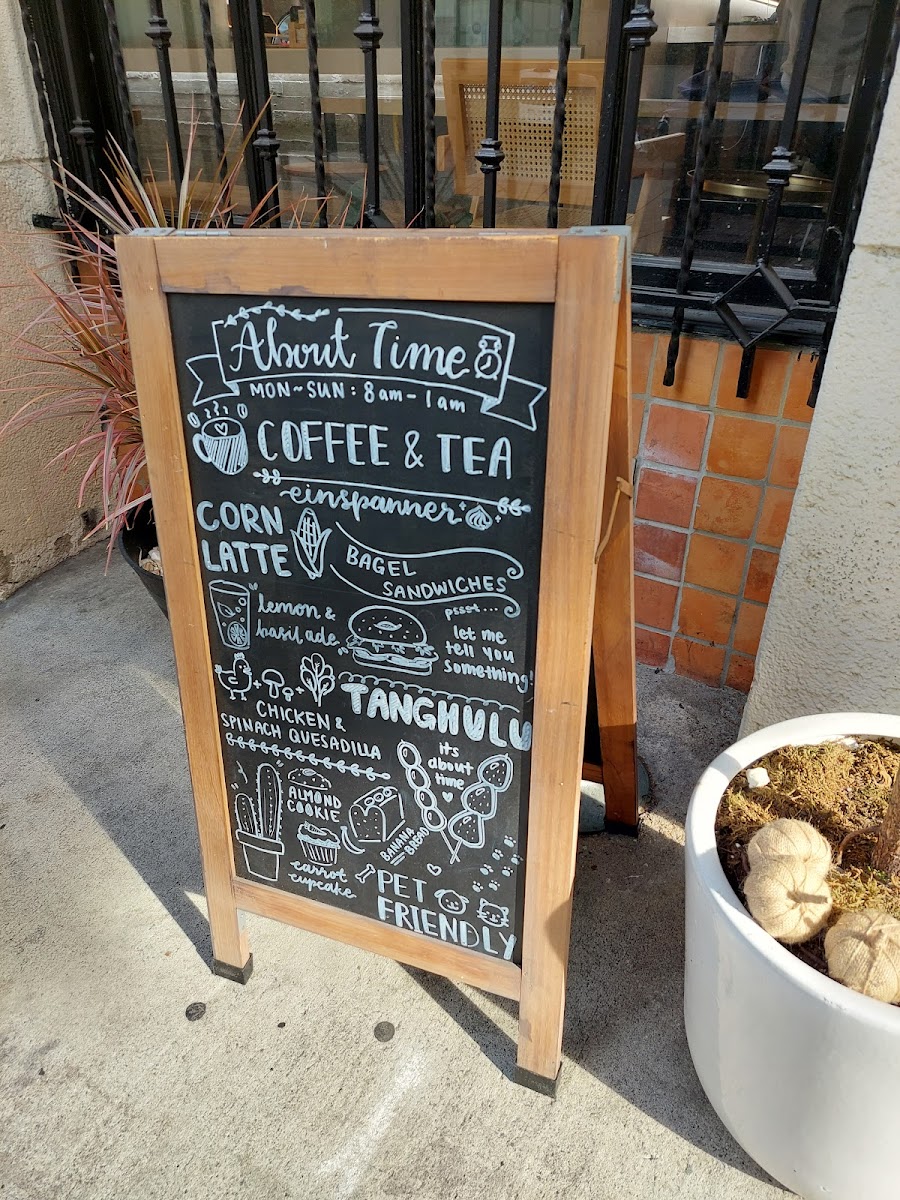 About Time
MON~SUN: 8am-1am
COFFEE & TEA
einspanner
CORN
LATTE
BAGEL
SANDWICHES
lemon &
basil ade
pssst...
let me
tell you
something!
CHICKEN &
SPINACH QUESADILLA
TANGHULU
its
about
time
ALMOND
COOKIE
BANANA
BREAD
carrot
cupcake
PET
FRIENDLY